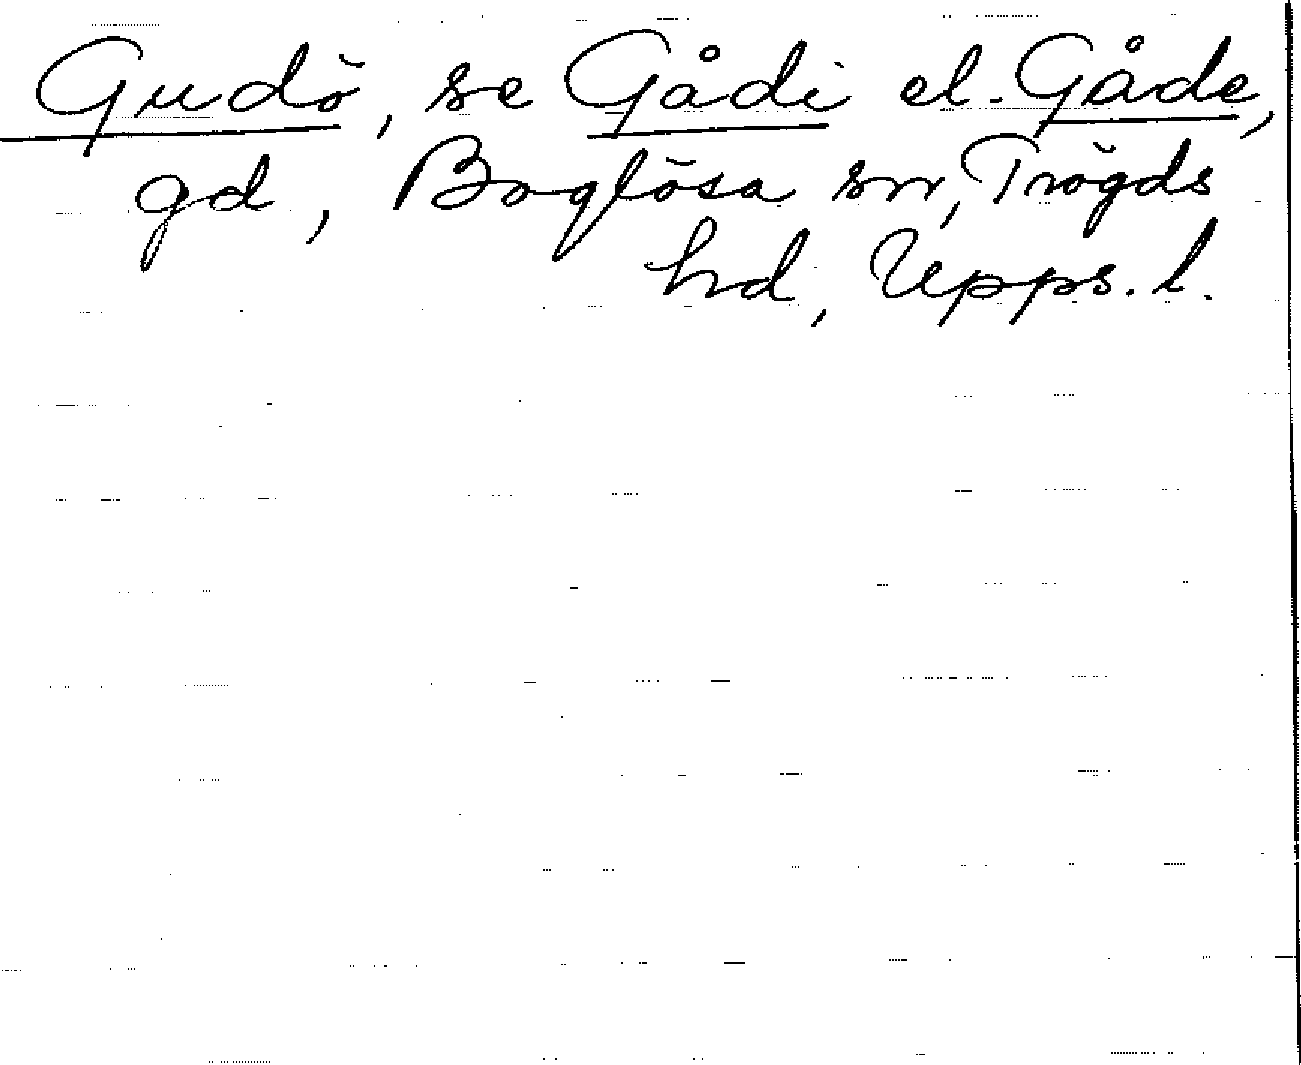 Gudö, se Gådi el. Gåde,
gd, Boglösa sn, Trögds
hd, Upps. l.